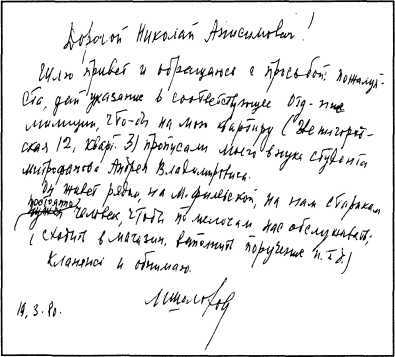 Дорогой Николай Анисимович!
Шлю привет и обращаюсь с просьбой: пожалуй-
ста, дай указание в соответствующее отд-ние
милиции, что-бы на мою квартиру (Звенигород-
ская 12, кварт. 3) прописали моего внука студента
Митрофанова Андрея Владимировича.
Он живет рядом, на М. Филевской, но нам старикам
нужен человек, чтобы по мелочам нас обслуживать,
(сходить в магазин, выполнить поручение и.т.д.)
Кланяюсь и обнимаю.
МШолохов
19.3.80.